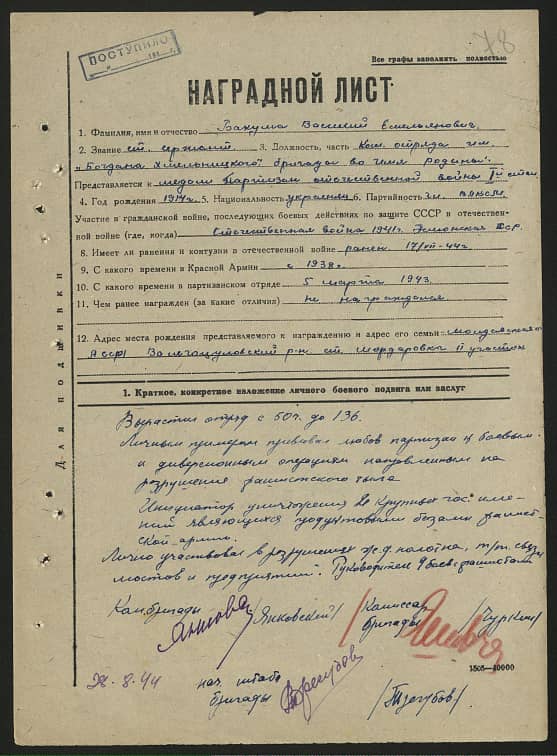 78
ПОСТУПИЛО
Все графы заполнять полностью
НАГРАДНОЙ ЛИСТ
1. Фамилия, имя и отчество Бакума Василий Емельянович
2. Звание ст. сержант 3. Должность, часть Ком. отряда им.
„Богдана Хмельницкого" бригады „во имя Родины".
Представляется к медали Партизан отечественной войны I й степ.
4. Год рождения 1914 г. 5. Национальность украинец 6. Партийность чл. ВЛКСМ
Участие в гражданской войне, последующих боевых действиях по защите СССР и отечествен-
ной войне (где, когда) Отечественная война 1941 г. Эстонская ССР.
8. Имеет ли ранения и контузии в отечественной войне ранен 17/III-44 г.
9. С какого времени в Красной Армии с 1938 г.
10. С какого времени в партизанском отряде 5 марта 1943
11. Чем ранее награжден (за какие отличия) не награждался
12. Адрес места рождения представляемого к награждению и адрес его семьи Молдавская
АССР Валегоцуловский р-н ст. Мардаровка II участок
Для подшивки
1. Краткое, конкретное изложение личного боевого подвига или заслуг
Вырастил отряд с 50 ч. до 136.
Личным примером прививал любовь партизан к боевым
и диверсионным операциям направленным на
разрушения фашистского тыла
Инициатор уничтожения 20 крупных гос. име-
ний являющихся продуктовыми базами фашист-
ской армии.
Лично участвовал в разрушении ж.д. полотна, связи
мостов и предприятий. Руководитель 9 боев с фашистами
Ком. бригады /Янковский/ Комиссар
бригады /Чуркин/
1505—40000
28.8.44 нач. штаба
бригады /Трегубов/